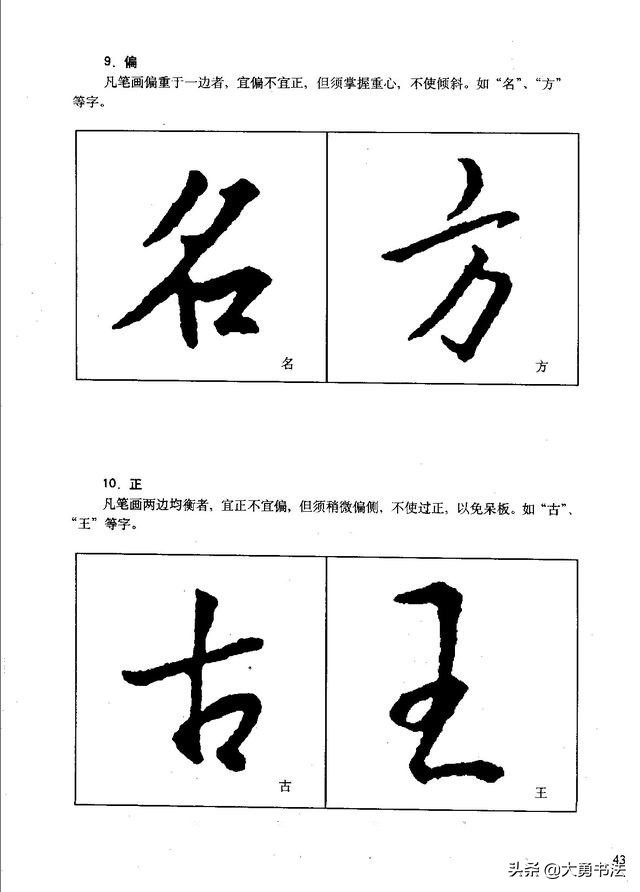 9. 偏
凡笔画偏重于一边者，宜偏不宜正，但须掌握重心，不使倾斜。如“名”、“方”
等字。
名 方
名 方
10. 正
凡笔画两边均衡者，宜正不宜偏，但须稍微偏侧，不使过正，以免呆板。如“古”、
“王”等字。
古 王
古 王
43
头条 @大勇书法